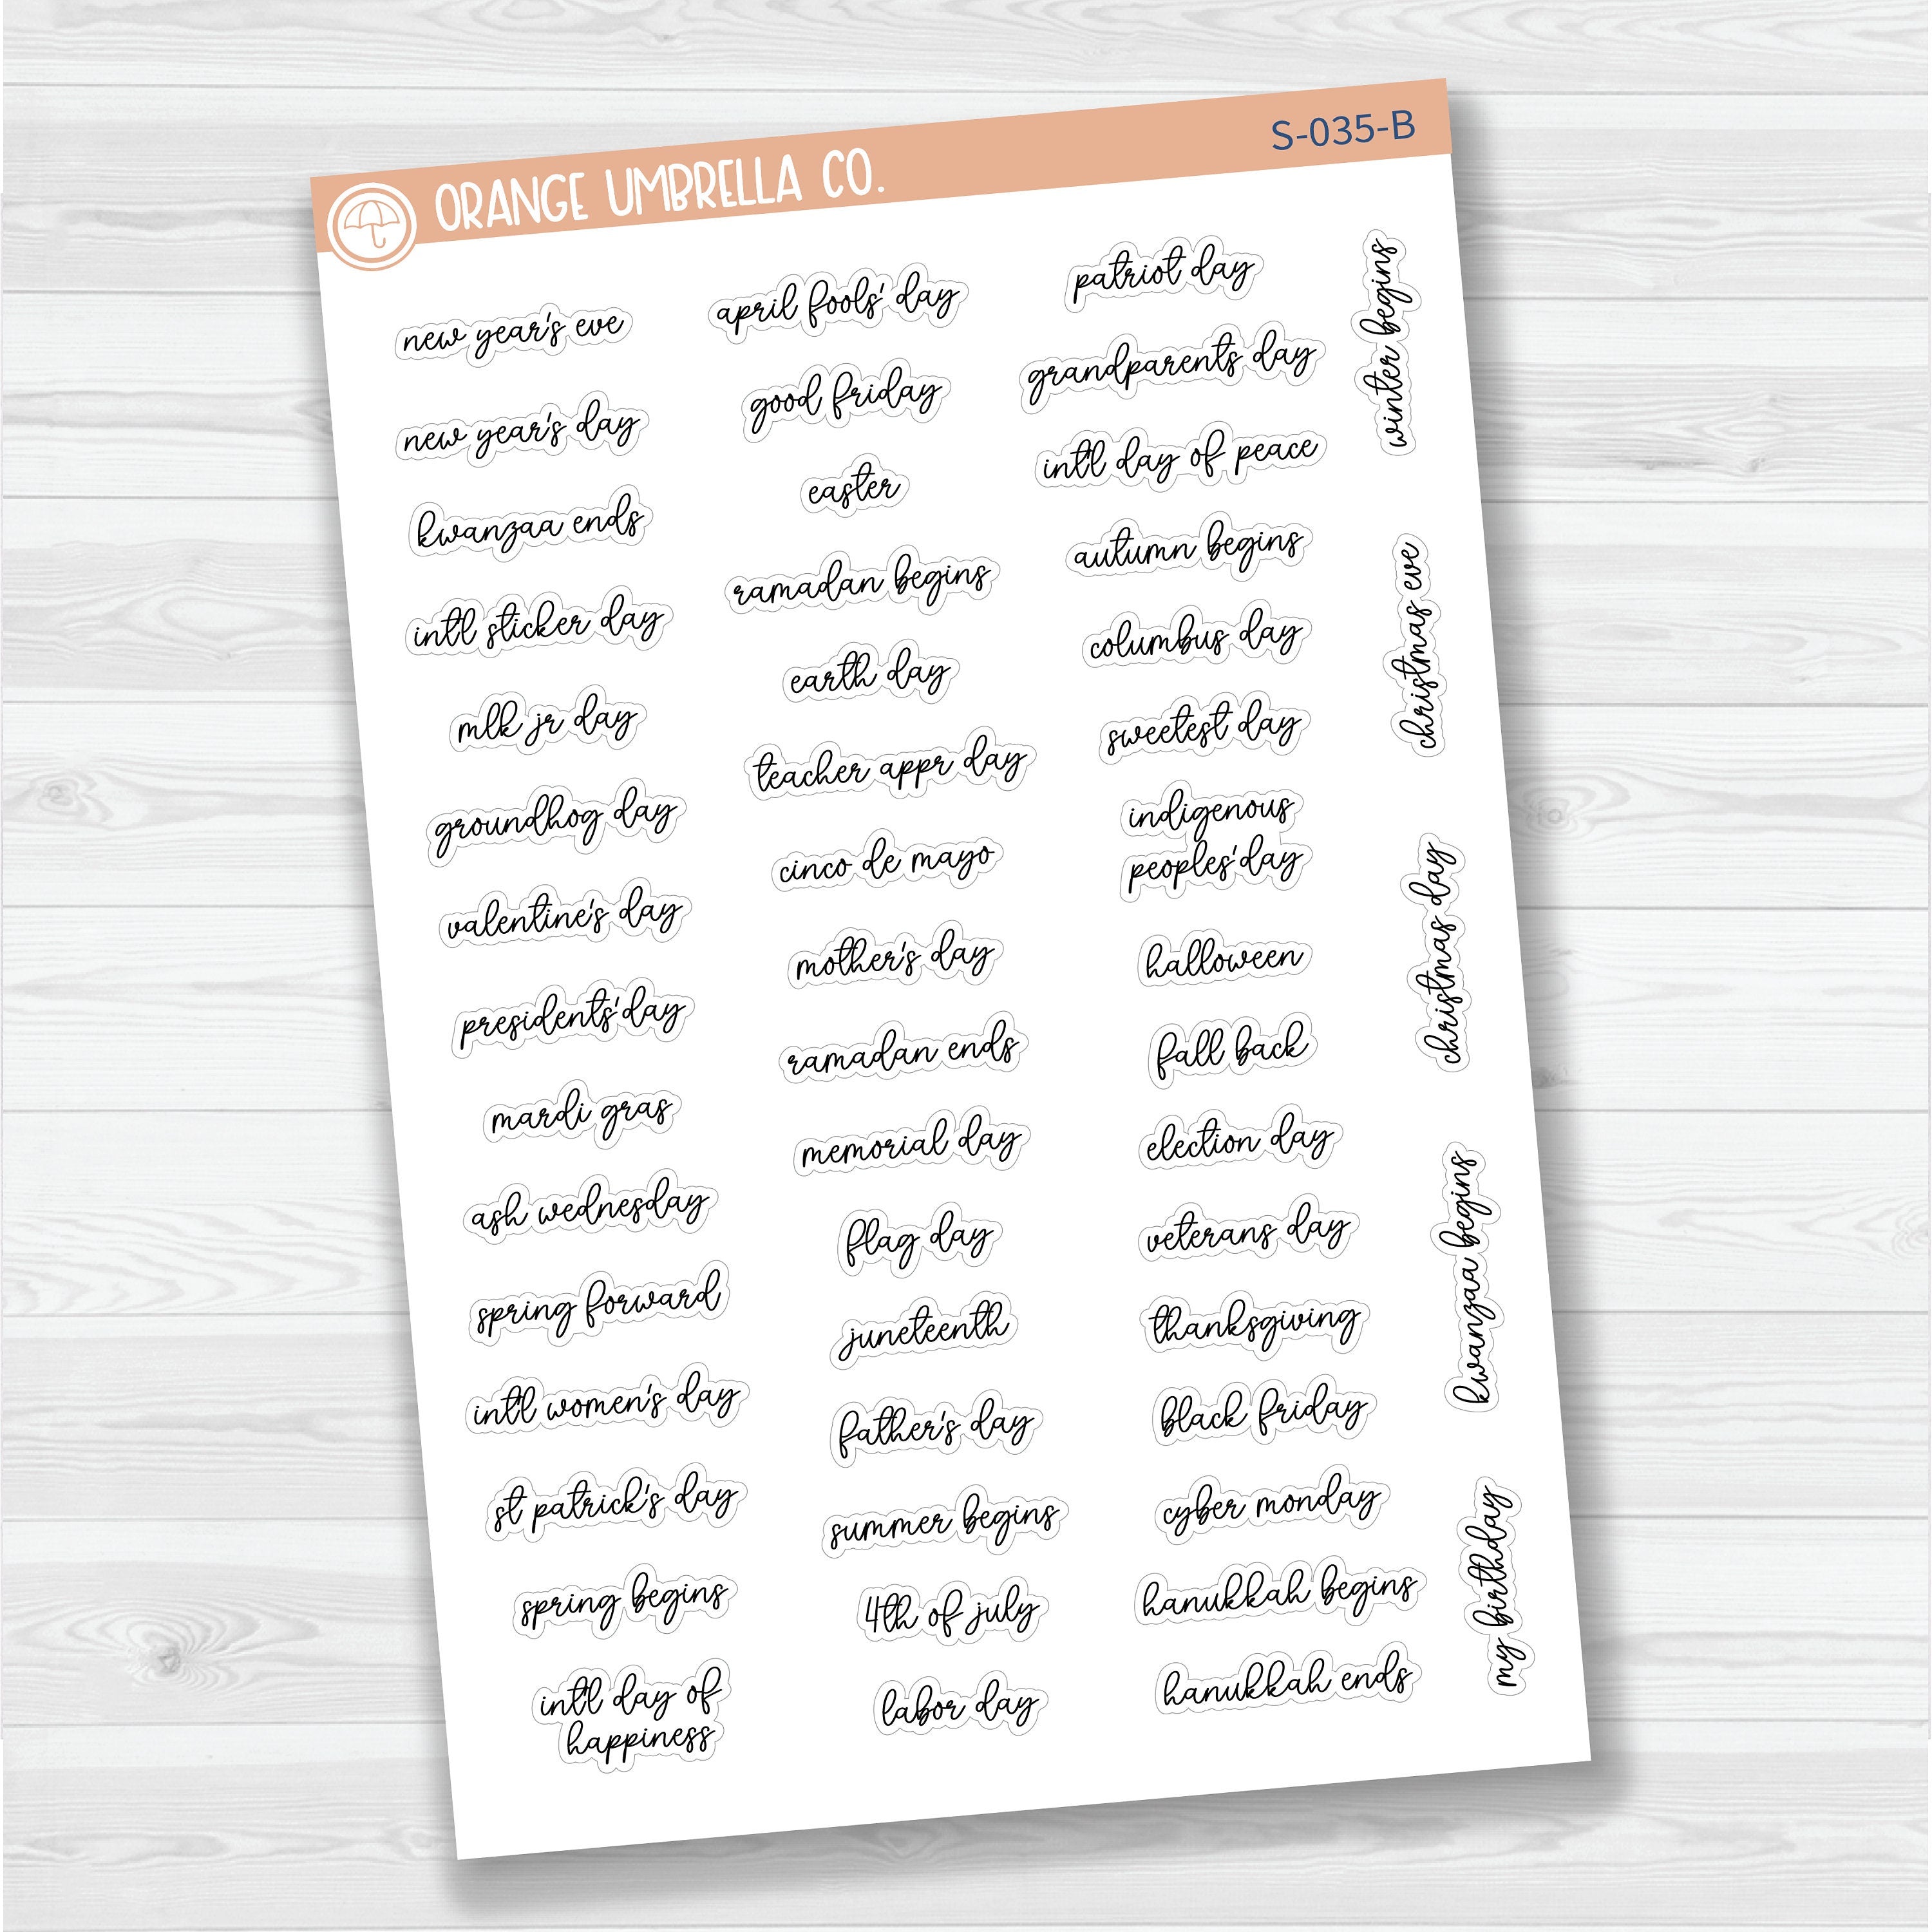 ORANGE UMBRELLA CO.
S-035-B
new year's eve
new year's day
kwanzaa ends
int'l sticker day
mlk jr day
groundhog day
valentine's day
presidents' day
mardi gras
ash wednesday
spring forward
int'l women's day
st patrick's day
spring begins
int'l day of
happiness
april fools' day
good friday
easter
ramadan begins
earth day
teacher appr day
cinco de mayo
mother's day
ramadan ends
memorial day
flag day
juneteenth
father's day
summer begins
4th of july
labor day
patriot day
grandparents day
int'l day of peace
autumn begins
columbus day
sweetest day
indigenous
peoples' day
halloween
fall back
election day
veterans day
thanksgiving
black friday
cyber monday
hanukkah begins
hanukkah ends
winter begins
christmas eve
christmas day
kwanzaa begins
my birthday